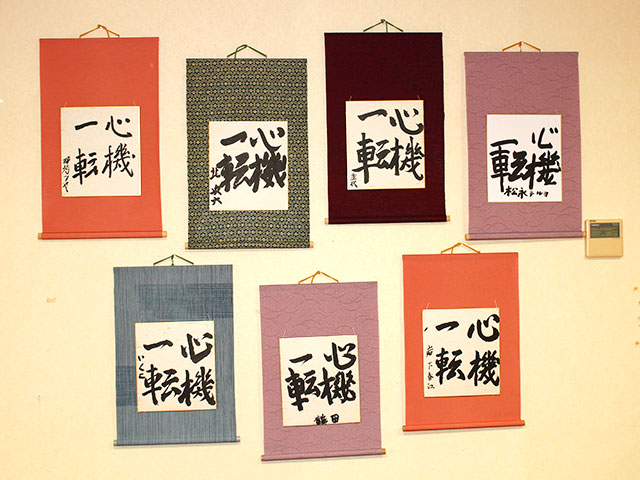 心機
一転
心機
一転
心機
一転
心機
一転
松永
心機
一転
いくら
心機
一転
藤田
心機
一転